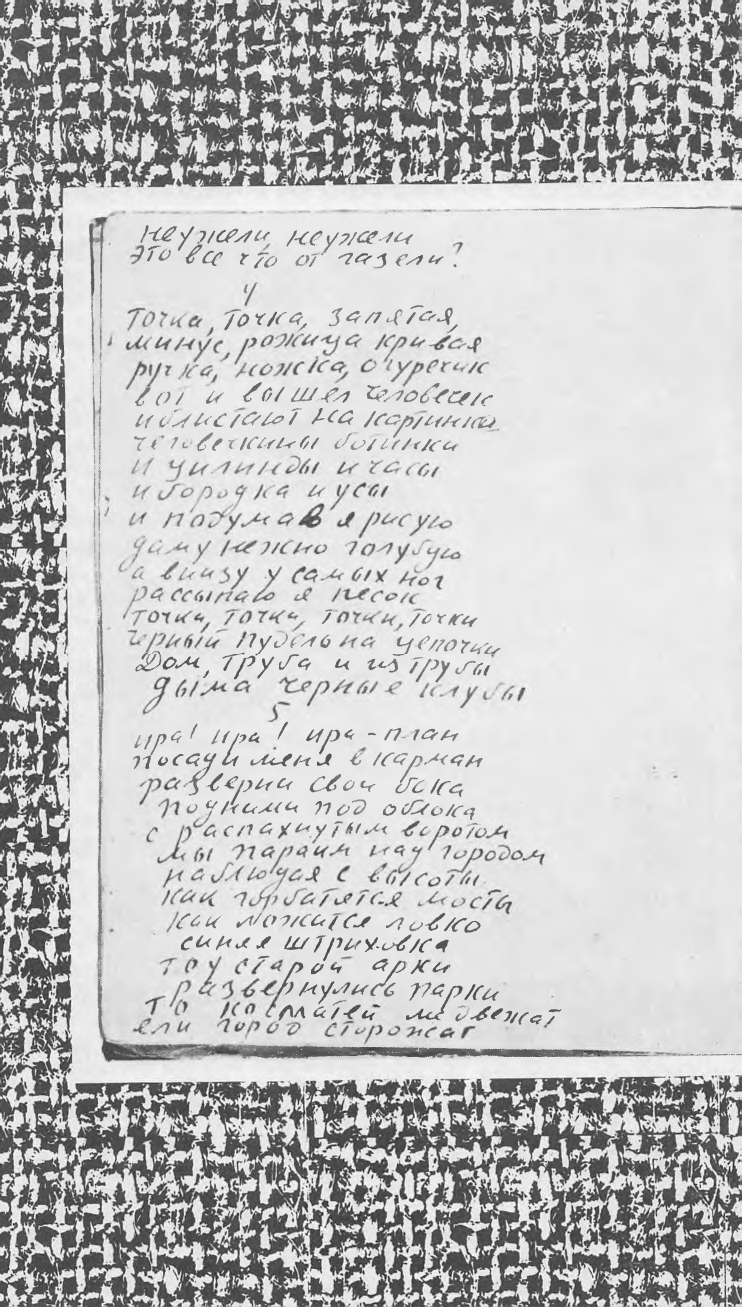 неужели, неужели
это все что от газели?
4
точка, точка, запятая,
минус, рожица кривая
ручка, ножка, огуречик
вот и вышел человечек
и блистают на картинке
человечкины ботинки
и цилиндр и часы
и бородка и усы
и подумав я рисую
даму нежно голубую
а внизу у самых ног
рассыпаю я песок
точка, точка, точки, точки
черный пудель на цепочки
Дом, труба и из трубы
дыма черные клубы
5
ира! ира! ира-план
посади меня в карман
разверни свои бока
подними под облока
с распахнутым воротом
мы парим над городом
наблюдая с высоты
как горбатятся мосты
как ложится ловко
синяя штриховка
то у старой арки
развернулись парки
то косматей медвежат
ели город сторожат